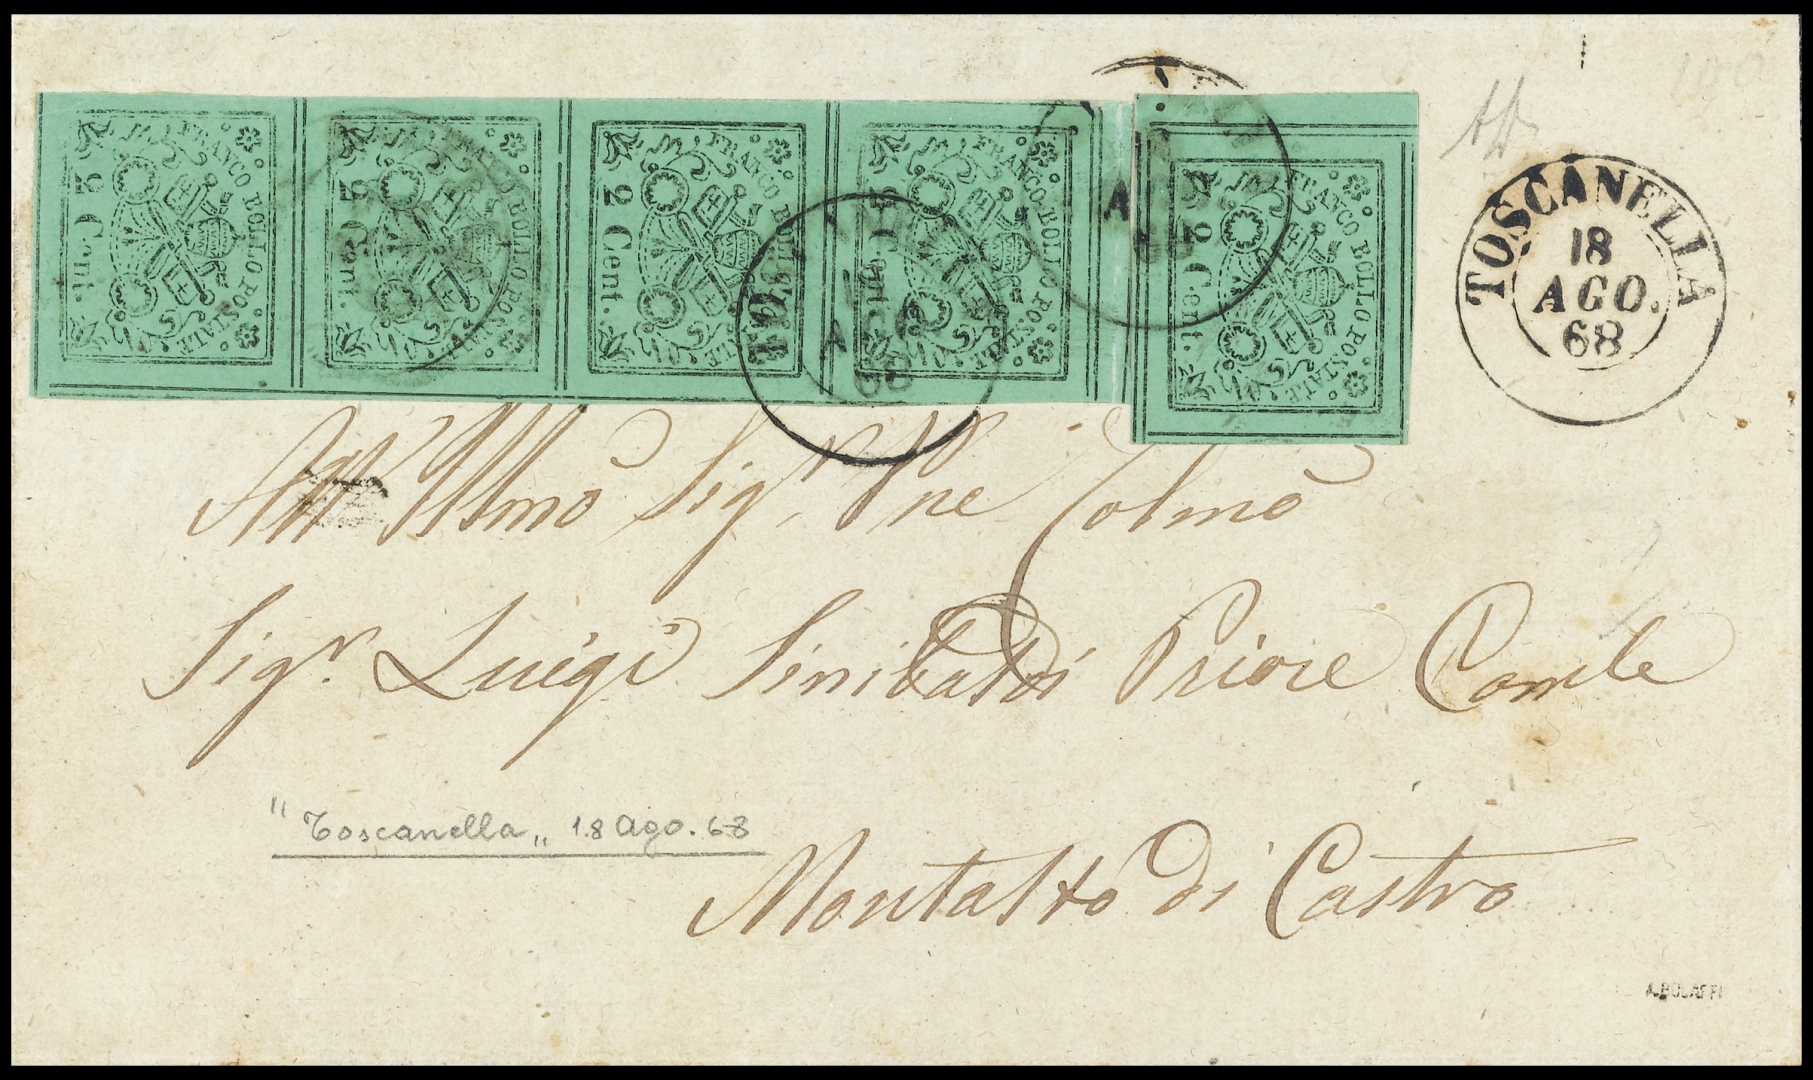 FRANCO BOLLO POSTALE
2 Cent.
FRANCO BOLLO POSTALE
2 Cent.
FRANCO BOLLO POSTALE
2 Cent.
FRANCO BOLLO POSTALE
2 Cent.
FRANCO BOLLO POSTALE
2 Cent.
TOSCANELLA
18
AGO.
68
All' Illmo Sigr Pne Colmo
Sigr. Luigi Sinibaldi Priore Comle
"Toscanella„ 18 Ago. 68
Montalto di Castro
A. BOLAFFI